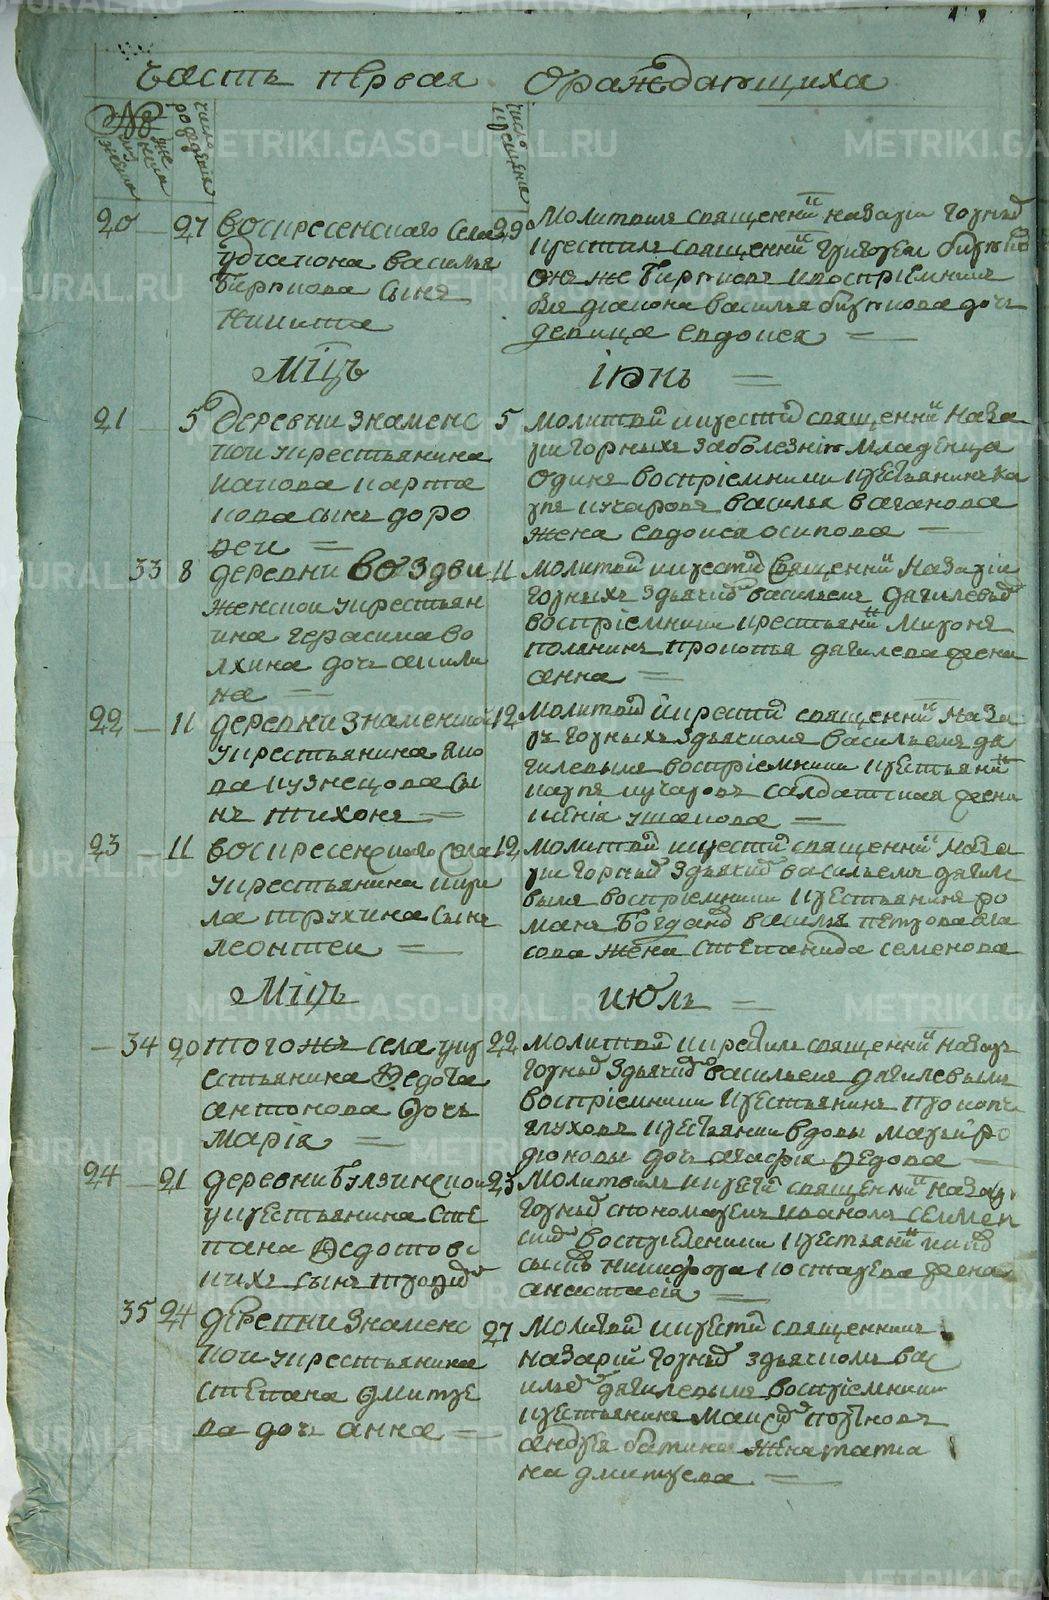 часть первая о раждающихса
№
муже женска
число рождения
число крещения
20 27 воскресенского села
у дiакона василья
бирюкова сынъ
никита
29 молитвилъ священникъ назари горныхъ
крестилъ священникъ григореи бирюковъ
онъ же бирюковъ и восприемникъ
ва дiакона василья бирюкова дочь
девица евдокея
мцъ iюнь
21 5 деревни знаменс
кои у крестьянина
карпа
кова сынъ доро
феи
5 молитвой и крестилъ священникъ наза
ри горныхъ за болезнiю младенца
одинъ восприемники крестьянинъ ка
рпъ кучаровъ василья ваганова
жена евдокея осипова
33 8 деревни воздви
женскои у крестьян
ина герасима во
лхина дочь акили
на
11 молитвой и крестилъ священникъ назарiи
горныхъ з дьячкомъ васильемъ дягилевымъ
восприемники крестьянинъ миронъ
полянинъ прокопья дягилева жена
анна
22 11 деревни знаменской
у крестьянина яко
ва кузнецова сы
нъ тихонъ
12 молитвой и крестилъ священникъ наза
ръ горныхъ з дьячкомъ васильемъ дя
гилевымъ восприемники крестьянинъ
карпъ кучаровъ салдатская жена
ксенiя ушакова
23 11 воскресенского села
у крестьянина кири
ла трухина сынъ
леонтеи
12 молитвой и крестилъ священникъ наза
ри горныхъ з дьячкомъ васильемъ дягиле
вымъ восприемники крестьянинъ ро
манъ богданов василья петрова вла
сова жена степанида семенова
мцъ июль
34 20 того жъ села у кр
естьянина федота
антонова дочь
марiя
22 молитвой и крестилъ священникъ назаръ
горныхъ з дьячкомъ васильемъ дягилевымъ
восприемники крестьянинъ прокопеи
глуховъ крестьянки вдовы марьи ро
дiоновы дочь агафiя федова
24 21 деревни булзинскои
у крестьянина сте
пана федотовс
кихъ сынъ трофимъ
23 молитвилъ и крести священникъ назари
горныхъ с пономаремъ иваномъ семен
восприемники крестьянинъ
никифора костарева жена
анастасiя
35 24 деревни знаменс
кои у крестьянина
степана дмитре
ва дочь анна
27 молитвой и крестилъ священникъ
назарий горныхъ з дьячкомъ вас
ильемъ дягилевымъ восприемники
крестьянинъ максимъ портновъ
андрея батина жена татиа
на дмитрева